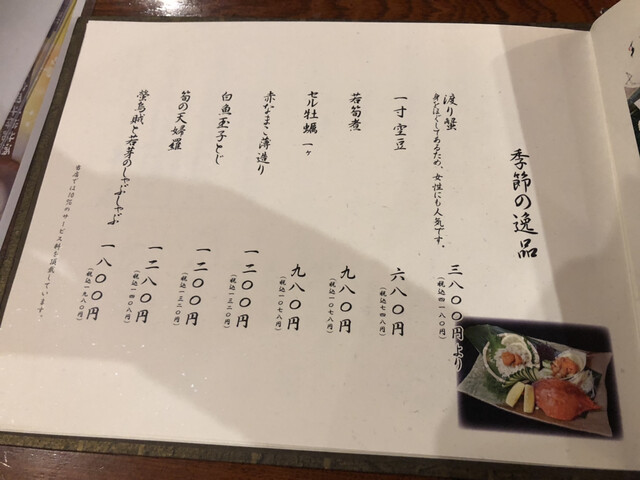 季節の逸品
渡り蟹
身をほぐしてあるため、女性にも人気です。
三八〇〇円より
(税込四一八〇円)
一寸空豆
六八〇円
(税込七四八円)
若筍煮
九八〇円
(税込一〇七八円)
セル牡蠣 一ヶ
九八〇円
(税込一〇七八円)
赤なまこ薄造り
一二〇〇円
(税込一三二〇円)
白魚玉子とじ
一二〇〇円
(税込一三二〇円)
筍の天婦羅
一二八〇円
(税込一四〇八円)
蛍烏賊と若芽のしゃぶしゃぶ
一八〇〇円
(税込一九八〇円)
当店では10%のサービス料を頂戴しています。